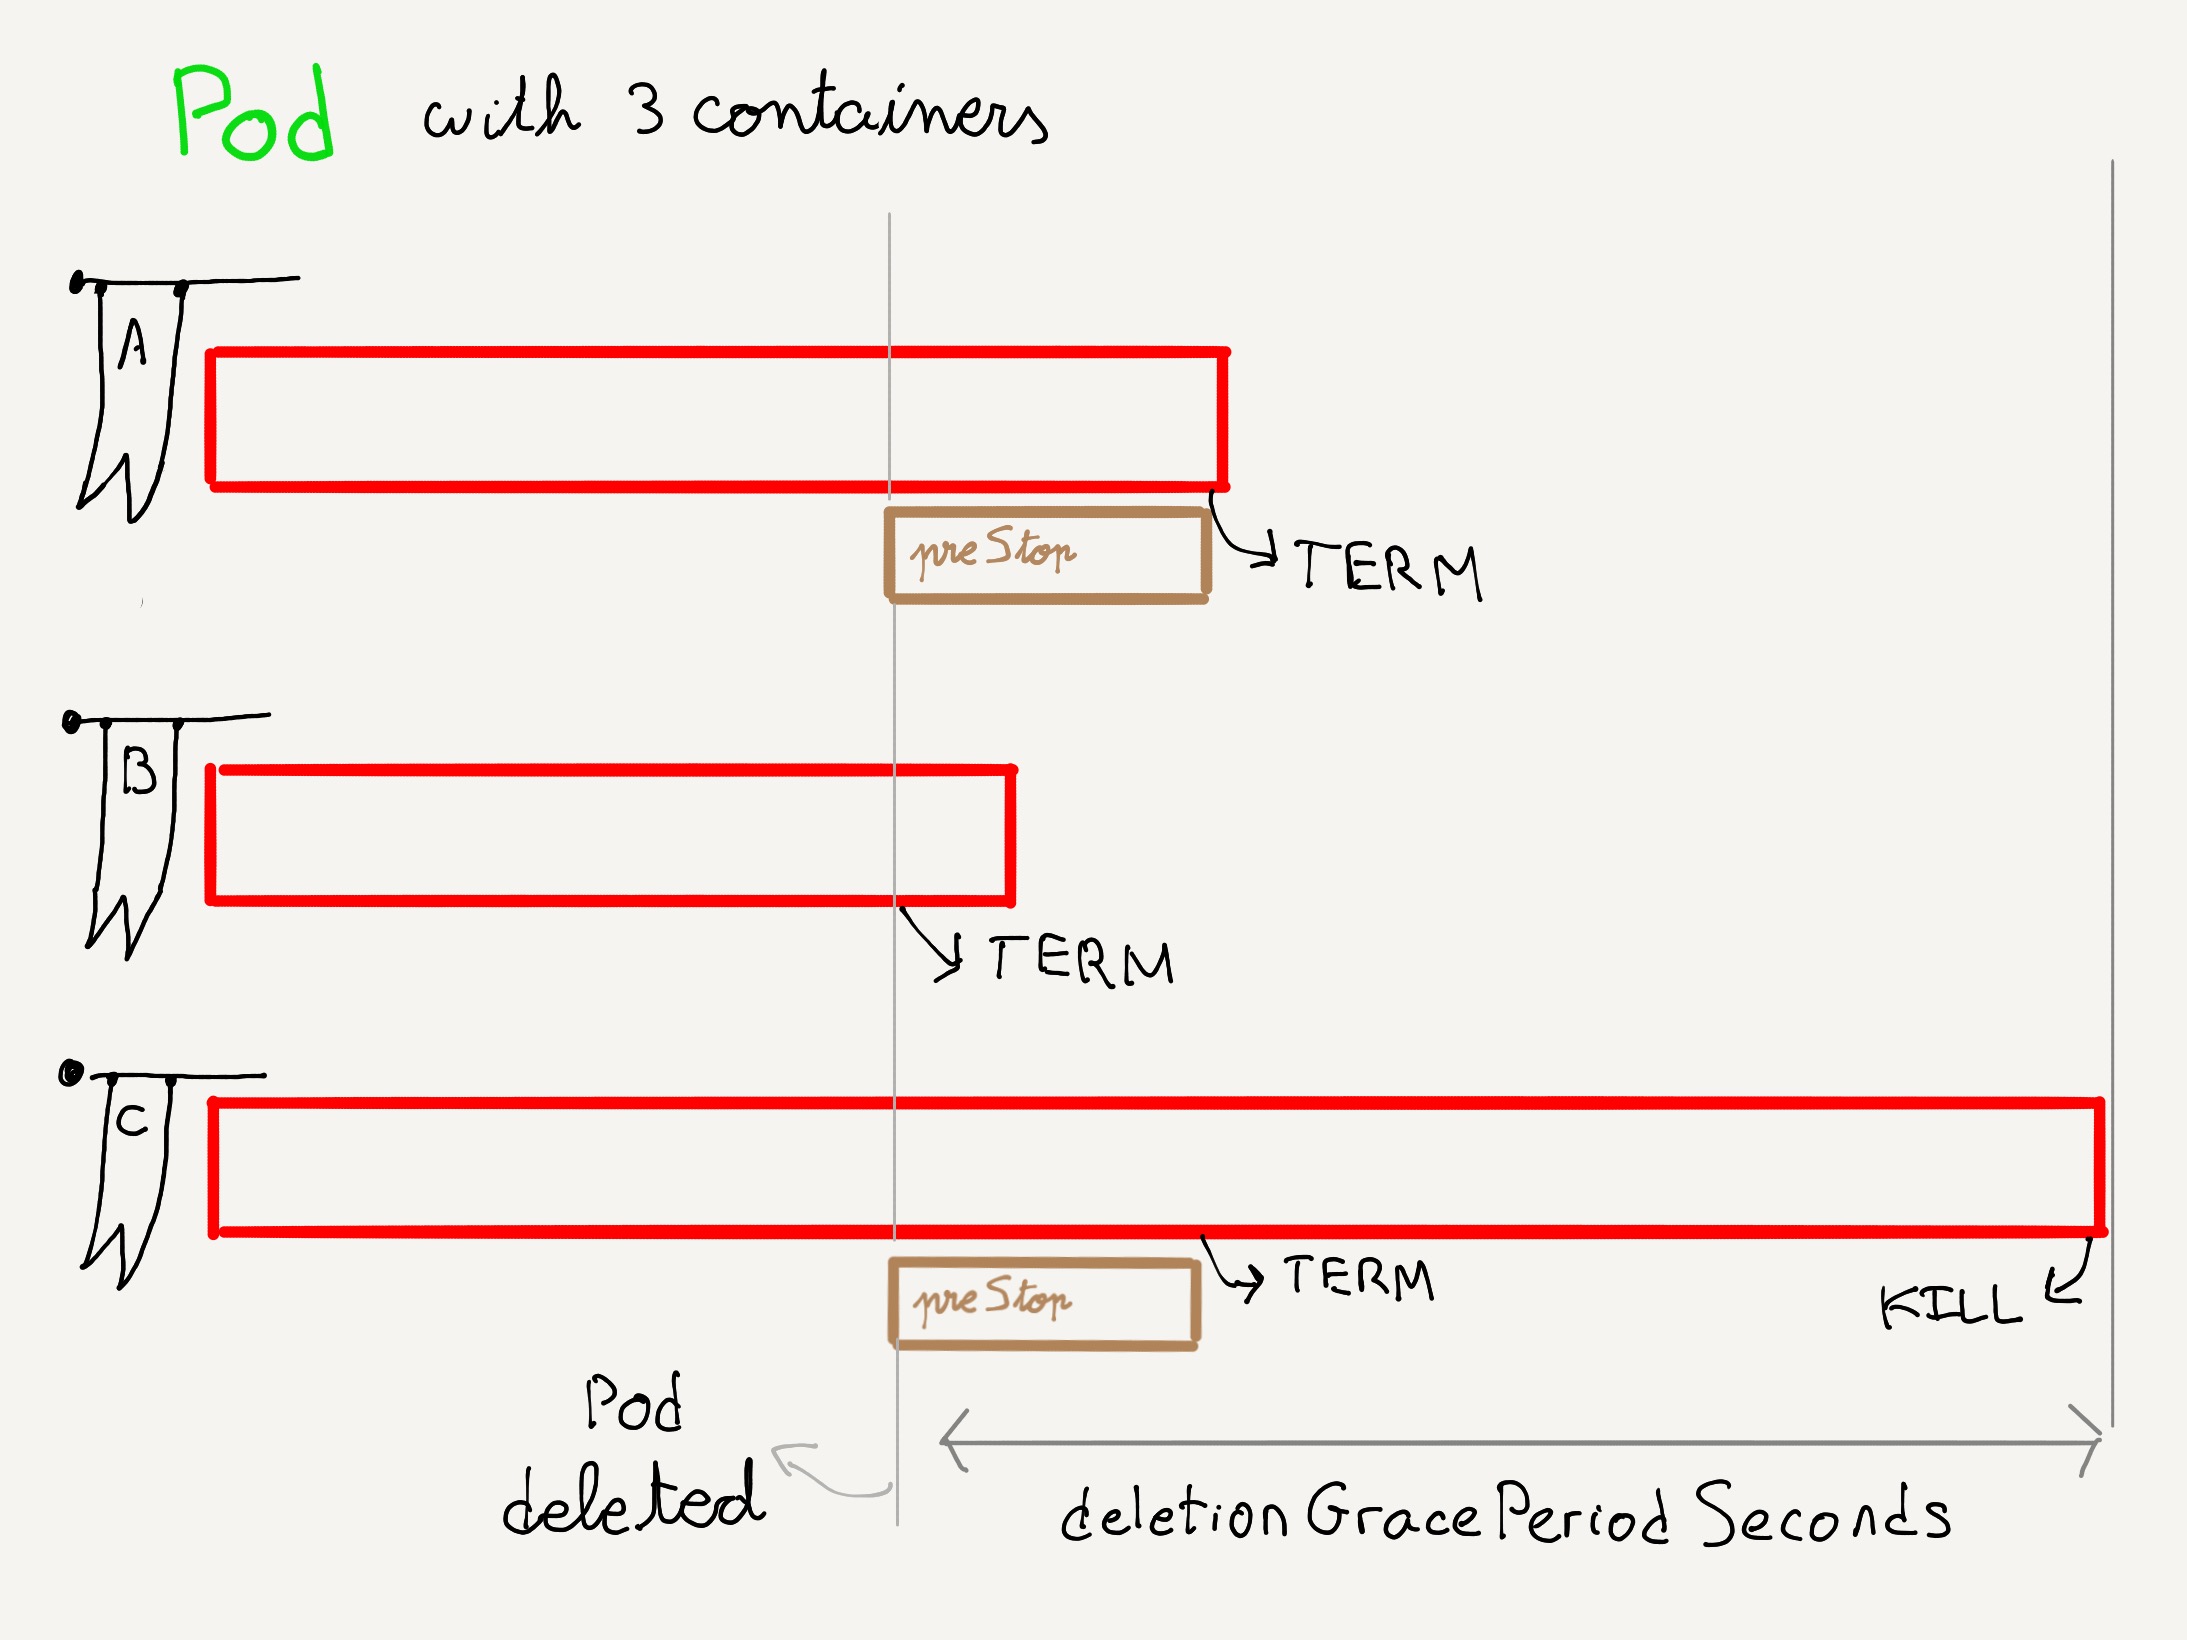 Pod with 3 containers
A
preStop
TERM
B
TERM
C
preStop
TERM
KILL
Pod
deleted
deletionGracePeriodSeconds